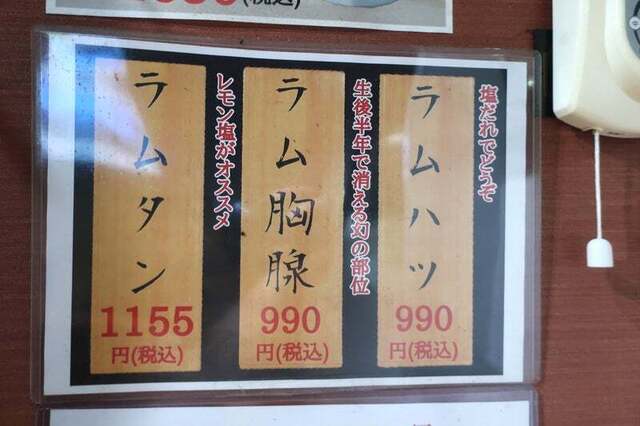 塩だれでどうぞ
ラムハツ
990
円(税込)
生後半年で消える幻の部位
ラム胸腺
990
円(税込)
レモン塩がオススメ
ラムタン
1155
円(税込)
(税込)